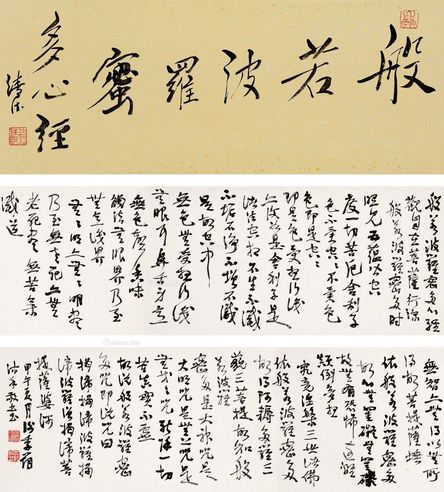 般若波羅蜜
多心經
般若波羅蜜多心經
觀自在菩薩行深
般若波羅蜜多時
照見五蘊皆空
度一切苦厄舍利子
色不異空空不異色
色即是空空
即是色受想行識
亦復如是舍利子
是諸法空相不生不滅
不垢不淨不增不減
是故空中
無色無受想行識
無眼耳鼻舌身意
無色聲香味
觸法無眼界乃至
無意識界
無無明亦無無明盡
乃至無老死亦無
老死盡無苦集
滅道
無智亦無得以無所
得故菩提薩埵
依般若波羅蜜多
故心無罣礙無罣礙
故無有恐怖遠離
顛倒夢想
究竟涅槃三世諸佛
依般若波羅蜜多
故得阿耨多羅三
藐三菩提故知般
若波羅
蜜多是大神咒是
大明咒是無上咒是
無等等咒能除一切
苦真實不虛
故說般若波羅蜜
多咒即說咒曰
揭諦揭諦波羅揭
諦波羅僧揭諦菩
提薩婆訶
甲午